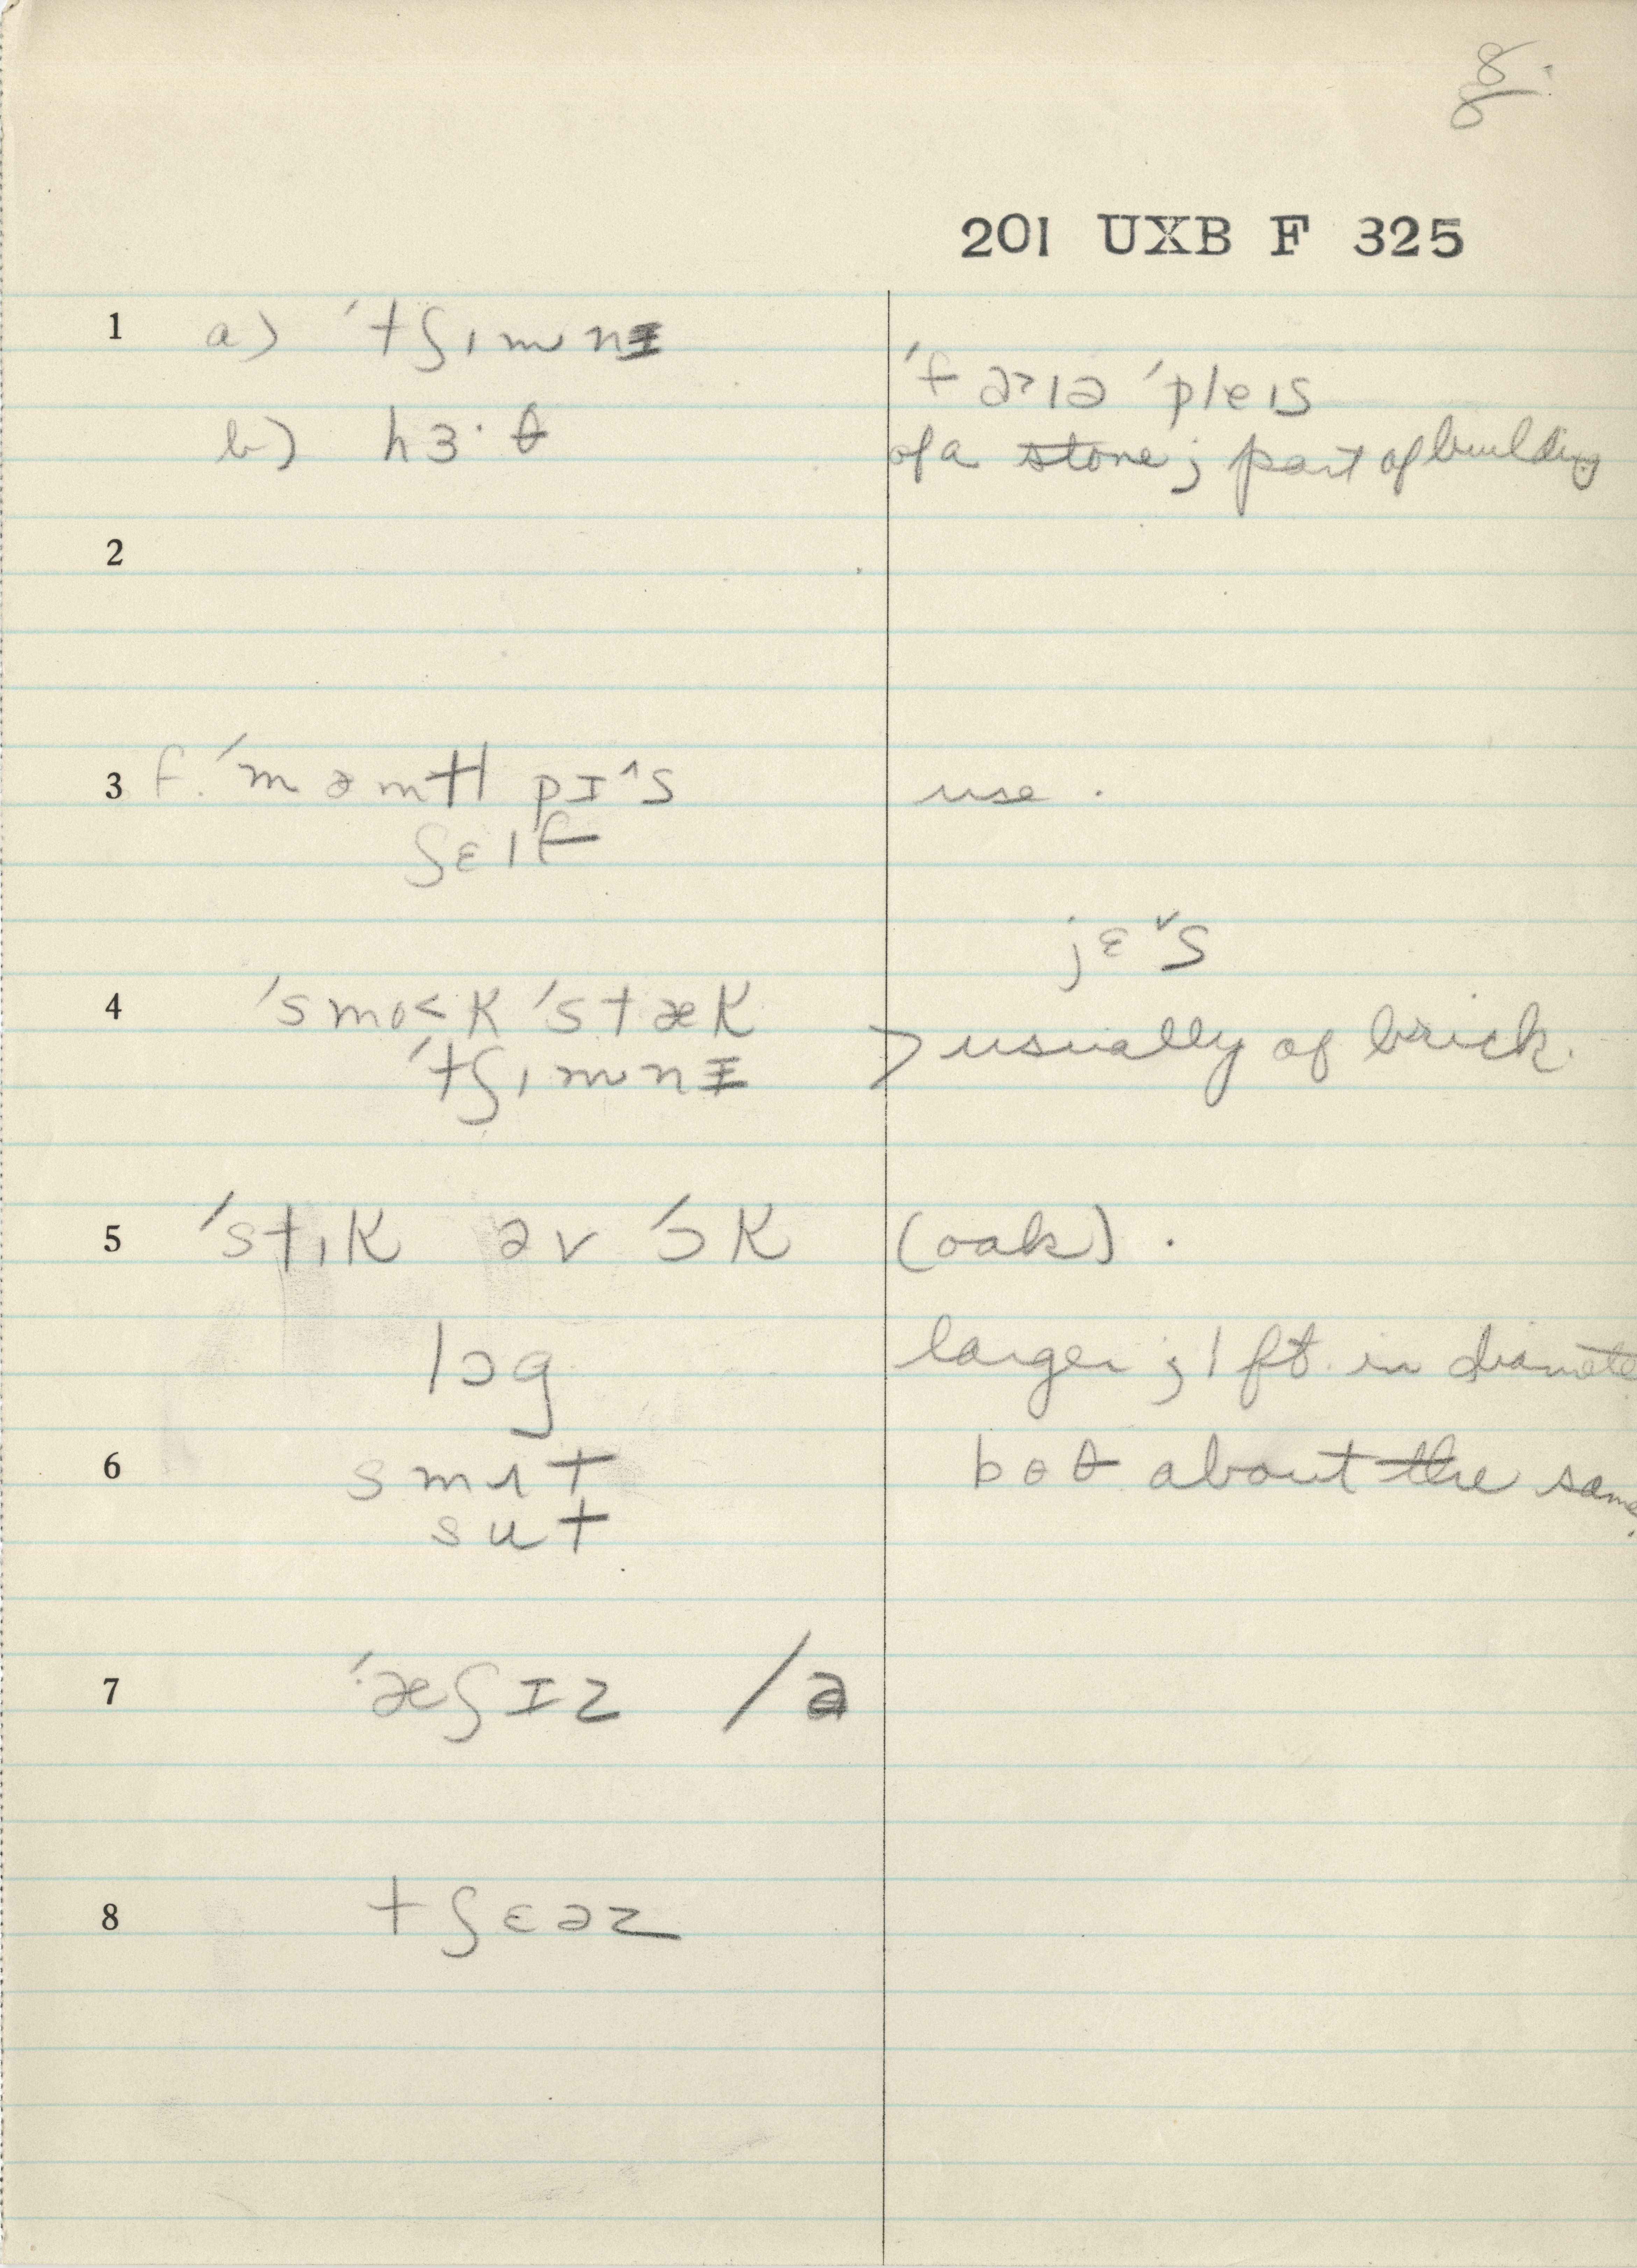 8.
8
201 UXB F 325
1 a) ˈtʃɪmnɪ
ˈfaɚ ˈpleɪs
b) hɜ·θ
of a stone; part of building
2
3 f. ˈmæntl pɪ^s use.
ʃɛlf
jɛˇs
4 ˈsmo<k ˈstæk
ˈtʃɪmnɪ > usually of brick.
5 ˈstɪk əv ˈɔk (oak).
lɔg larger; 1 ft. in diamete
6 smʌt boθ about the same.
sut
7 ˈæʃɪz /ə
8 tʃɛəz